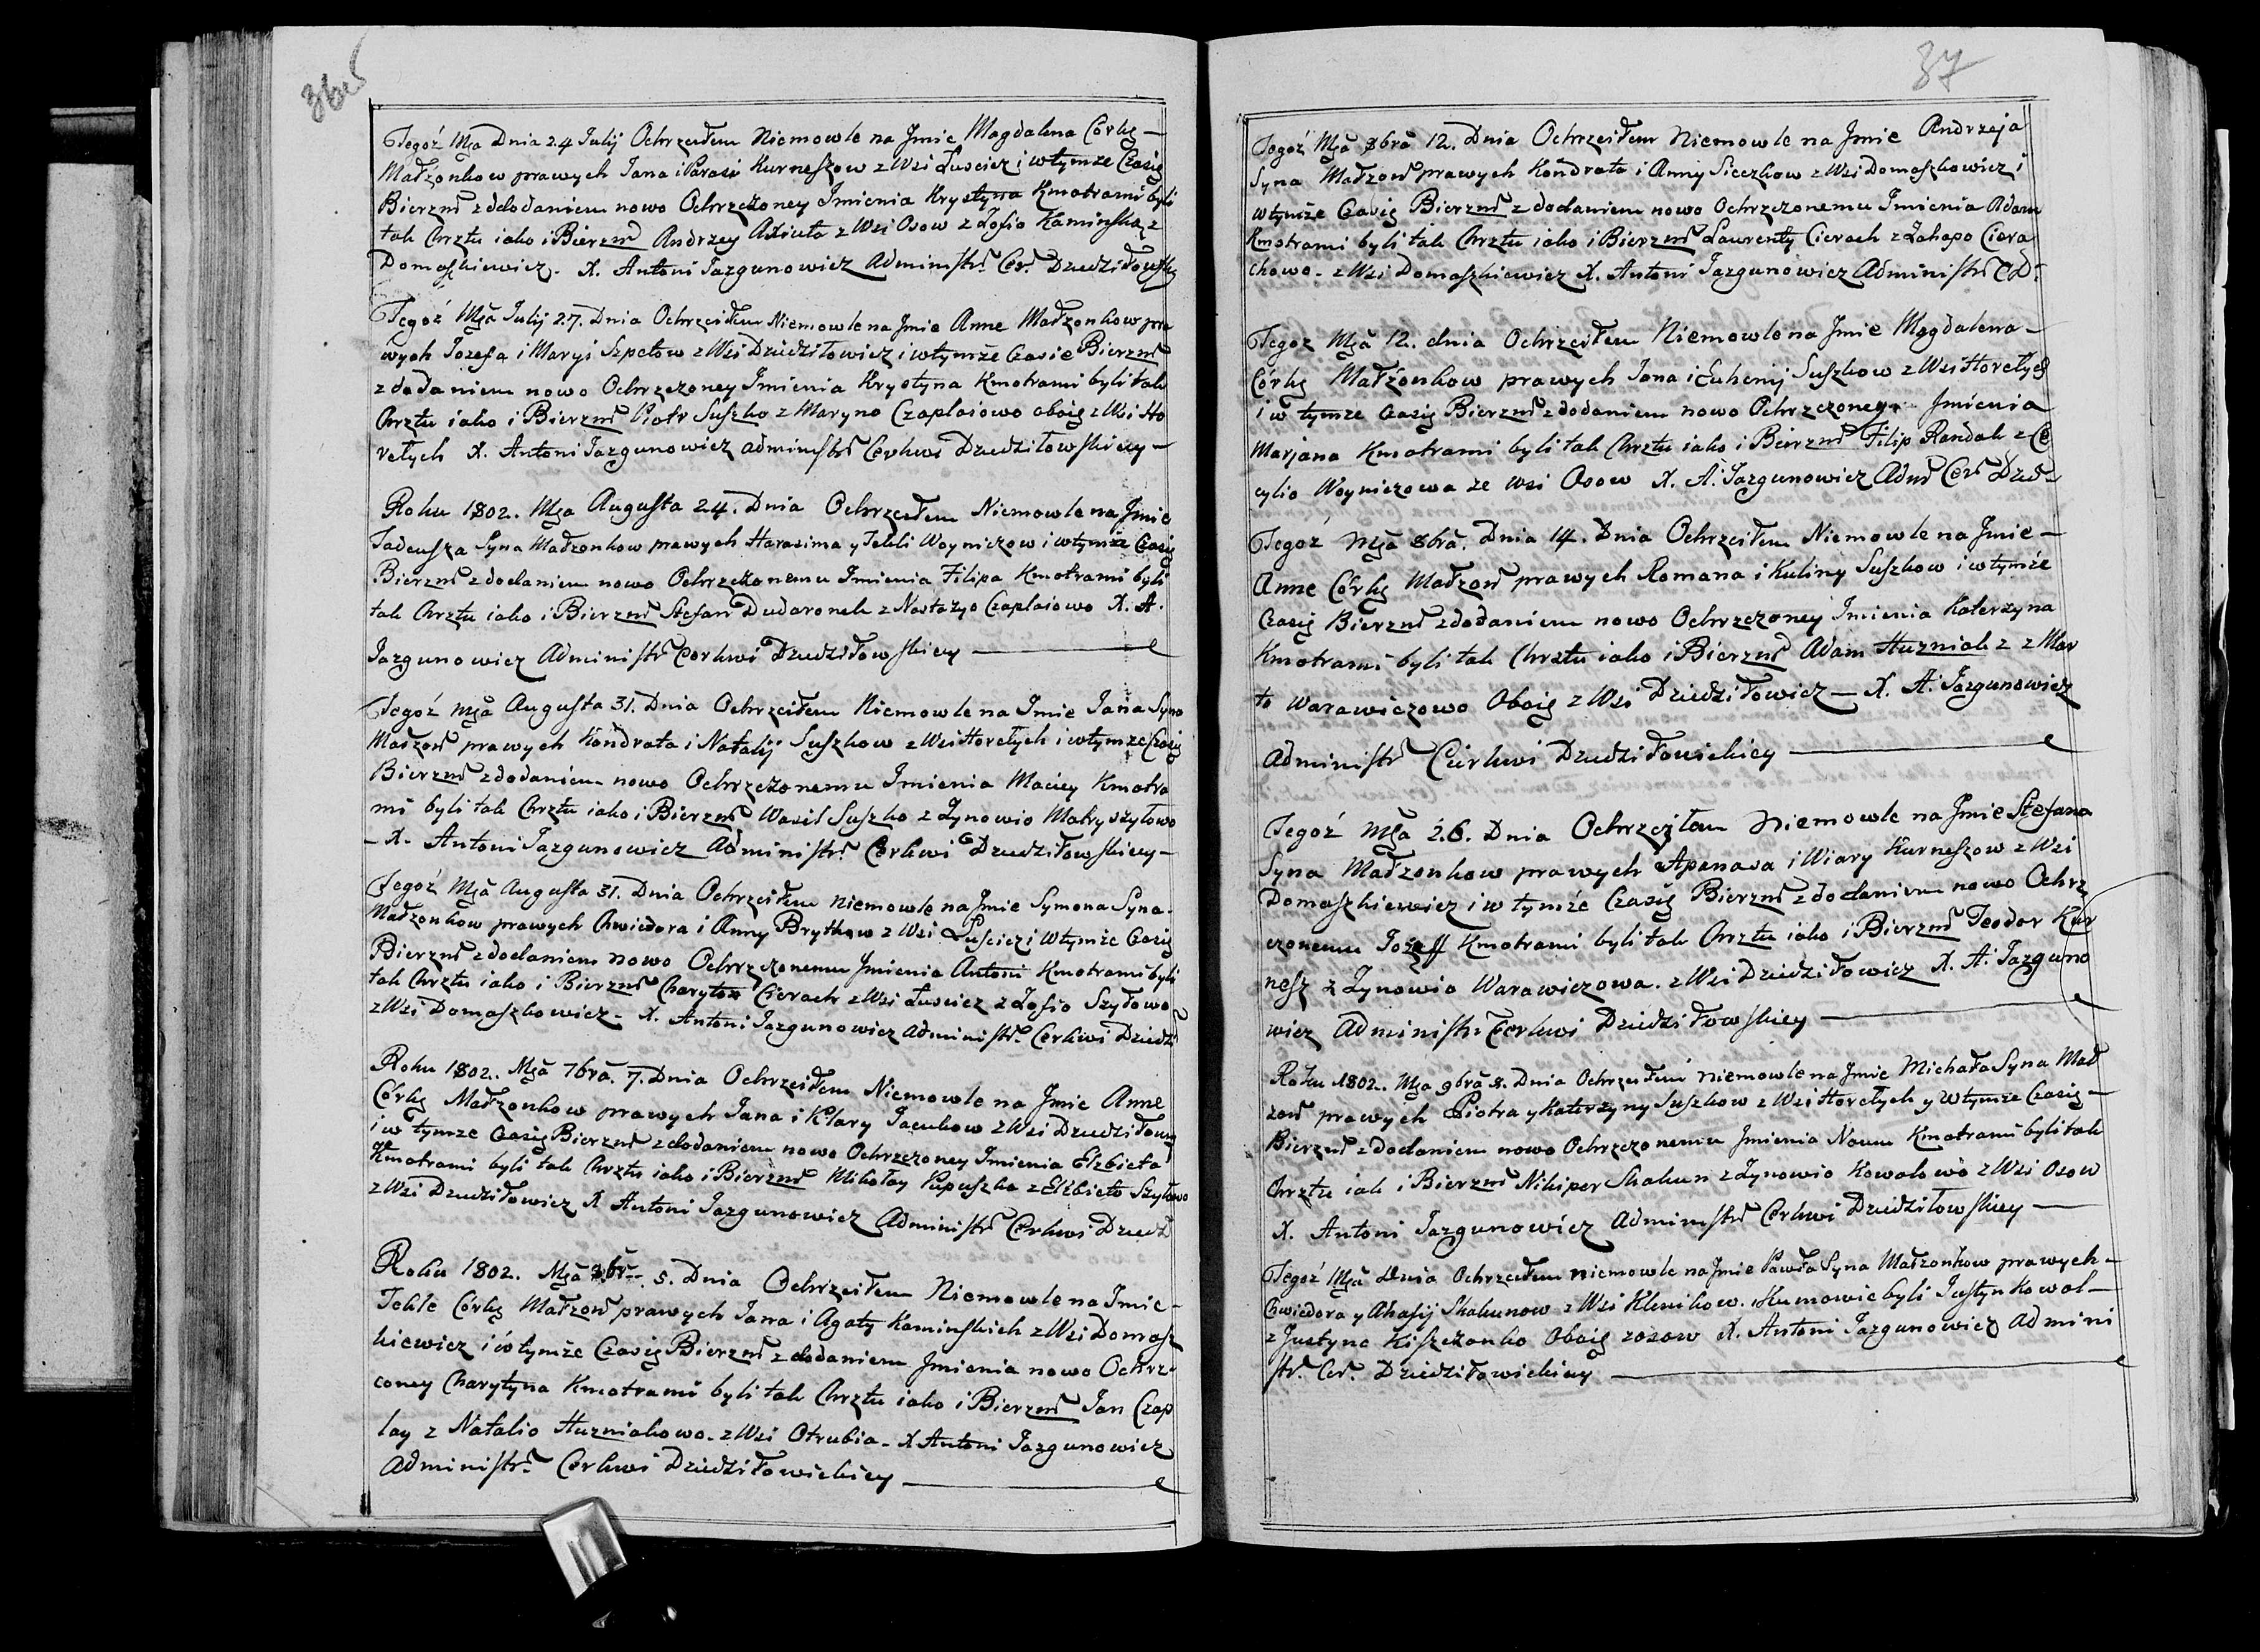 36об
Tegoż Mca Dnia 24 Julij Ochrzciłem Niemowle na Jmie Magdalena Córkę —
Małzonkow prawych Jana i Parasi Kurneszow z Wsi Łuścicz i wtymże Czasię
Bierzm zdodaniem nowo Ochrzczoney Jmienia Krystyna Kmotrami byli
tak Chrztu iako i Bierzm Andrzey Axiuta z Wsi Osow z Zofio Kaminską z
Domaszkiewicz. X. Antoni Jazgunowicz Administr. Cer. Dziedziłowskiey
Tegoż Mca Julij 27. Dnia Ochrzciłem Niemowle na Jmie Anne Małzonkow pra
wych Jozefa i Maryi Szpetow z Wsi Dziedziłowicz i wtymże Czasie Bierzm
zdodaniem nowo Ochrzczoney Jmienia Krystyna Kmotrami byli tak
Chrztu iako i Bierzm Piotr Suszko z Maryno Czaplaiowo oboig z Wsi Ho
rełych X. Antoni Jazgunowicz administr Cerkwi Dziedziłowskiey —
Roku 1802. Mca Augusta 24. Dnia Ochrzciłem Niemowle na Jmie
Tadeusza Syna Małzonkow prawych Harasima y Tekli Woyniczow i wtymże Czasię
Bierzm zdodaniem nowo Ochrzczonemu Jmienia Filipa Kmotrami byli
tak Chrztu iako i Bierzm Stefan Dudaronek z Nastazyo Czaplaiowo X. A.
Jazgunowicz Administr Cerkwi Dziedziłowskiey —
Tegoż Mca Augusta 31. Dnia Ochrzciłem Niemowle na Jmie Jana Syna
Małzon prawych Kondrata i Natalij Suszkow z Wsi Horełych i wtymże Czasię
Bierzm zdodaniem nowo Ochrzczonemu Jmienia Maciey Kmotra
mi byli tak Chrztu iako i Bierzm Wasil Suszko z Zynowio Matryszyłowo
— X. Antoni Jazgunowicz Administr. Cerkwi Dziedziłowskiey —
Tegoż Mca Augusta 31. Dnia Ochrzciłem Niemowle na Jmie Symona Syna.
Małzonkow prawych Chwiedora i Anny Brytkow z Wsi Łuścicz i wtymże Czasię
Bierzm zdodaniem nowo Ochrzczonemu Jmienia Antoni Kmotrami byli
tak Chrztu iako i Bierzm Charyton Cierach z Wsi Łuścicz z Zofio Szyłowo
z Wsi Domaszkowicz — X. Antoni Jazgunowicz Administr. Cerkwi Dziedzi
Roku 1802. Mca 7bra. 7. Dnia Ochrzciłem Niemowle na Jmie Anne
Córkę Małzonkow prawych Jana i Klary Jacukow z Wsi Dziedziłowicz
i w tymże Czasię Bierzm zdodaniem nowo Ochrzczoney Jmienia Elżbieta
Kmotrami byli tak Chrztu iako i Bierzm Mikołay Papuszka z Elżbieto Szyłowo
z Wsi Dziedziłowicz X Antoni Jazgunowicz Administr Cerkwi Dziedz
Roku 1802. Mca 8br. 5. Dnia Ochrzciłem Niemowle na Jmie —
Tekle Córkę Małzon prawych Jana i Agaty Kaminskich z Wsi Domasz
kiewicz i wtymże Czasię Bierzm zdodaniem Jmienia nowo Ochrz
coney Charytyna Kmotrami byli tak Chrztu iako i Bierzm Jan Czap
lay z Natalio Huzniakowo. z Wsi Otrubia. X Antoni Jazgunowicz
Administr. Cerkwi Dziedziłowickiey —
37
Tegoż Mca 8bra 12. Dnia Ochrzciłem Niemowle na Jmie Andrzeja
Syna Małzon prawych Kondrata i Anny Sieczkow z Wsi Domaszkowicz i
wtymże Czasię Bierzm zdodaniem nowo Ochrzczonemu Jmienia Adam
Kmotrami byli tak Chrztu iako i Bierzm Laurenty Cierach z Zahapo Ciera
chowo. z Wsi Domaszkiewicz X. Antoni Jazgunowicz Administr CD.
Tegoż Mca 12. dnia Ochrzciłem Niemowle na Jmie Magdalena —
Córkę Małżonkow prawych Jana i Euhenij Suszkow z Wsi Horełych
i w tymże Czasię Bierzm zdodaniem nowo Ochrzczoney Jmienia
Marjana Kmotrami byli tak Chrztu iako i Bierzm Filip Randak z Ce
cylio Woyniczowa ze wsi Osow X. A. Jazgunowicz Adm Cer Dzied
Tegoż Mca 8bra. Dnia 14. Dnia Ochrzciłem Niemowle na Jmie —
Anne Córkę Małzon prawych Romana i Kuliny Suszkow i wtymże
Czasię Bierzm zdodaniem nowo Ochrzczoney Jmienia Katerzyna
Kmotrami byli tak Chrztu iako i Bierzm Adam Huzniak z z Mar
to Warawiczowo Oboig z Wsi Dziedziłowicz — X. A. Jazgunowicz
Administr Cierkwi Dziedziłowickiey —
Tegoż Mca 26. Dnia Ochrzciłem Niemowle na Jmie Stefana
Syna Małzonkow prawych Apanasa i Wiary Kurneszow z Wsi
Domaszkiewicz i w tymże Czasię Bierzm zdodaniem nowo Ochrz
czonemu Jozeff Kmotrami byli tak Chrztu iako i Bierzm Teodor Kur
nesz z Zynowio Warawiczowa. z Wsi Dziedziłowicz X. A. Jazguno
wicz Administr. Cerkwi Dziedziłowskiey —
Roku 1802. Mca 9bra 8. Dnia Ochrzciłem Niemowle na Jmie Michała Syna Mał
zon prawych Piotra y Katerzyny Suszkow z Wsi Horełych y wtymże Czasię —
Bierzm zdodaniem nowo Ochrzczonemu Jmienia Naum Kmotrami byli tak
Chrztu iak i Bierzm Nikiper Skakun z Zynowio Kowalowo z Wsi Osow
X. Antoni Jazgunowicz Administr Cerkwi Dziedziłowskiey —
Tegoż Mca Dnia Ochrzciłem Niemowle na Jmie Pawła Syna Małzonkow prawych —
Chwiedora y Ahafij Skakunow z Wsi Klenikow. Kumowie byli Justyn Kowal —
z Justyno Kiszczanko Oboig zosow X. Antoni Jazgunowicz Admini
str. Cer. Dziedziłowickiey —